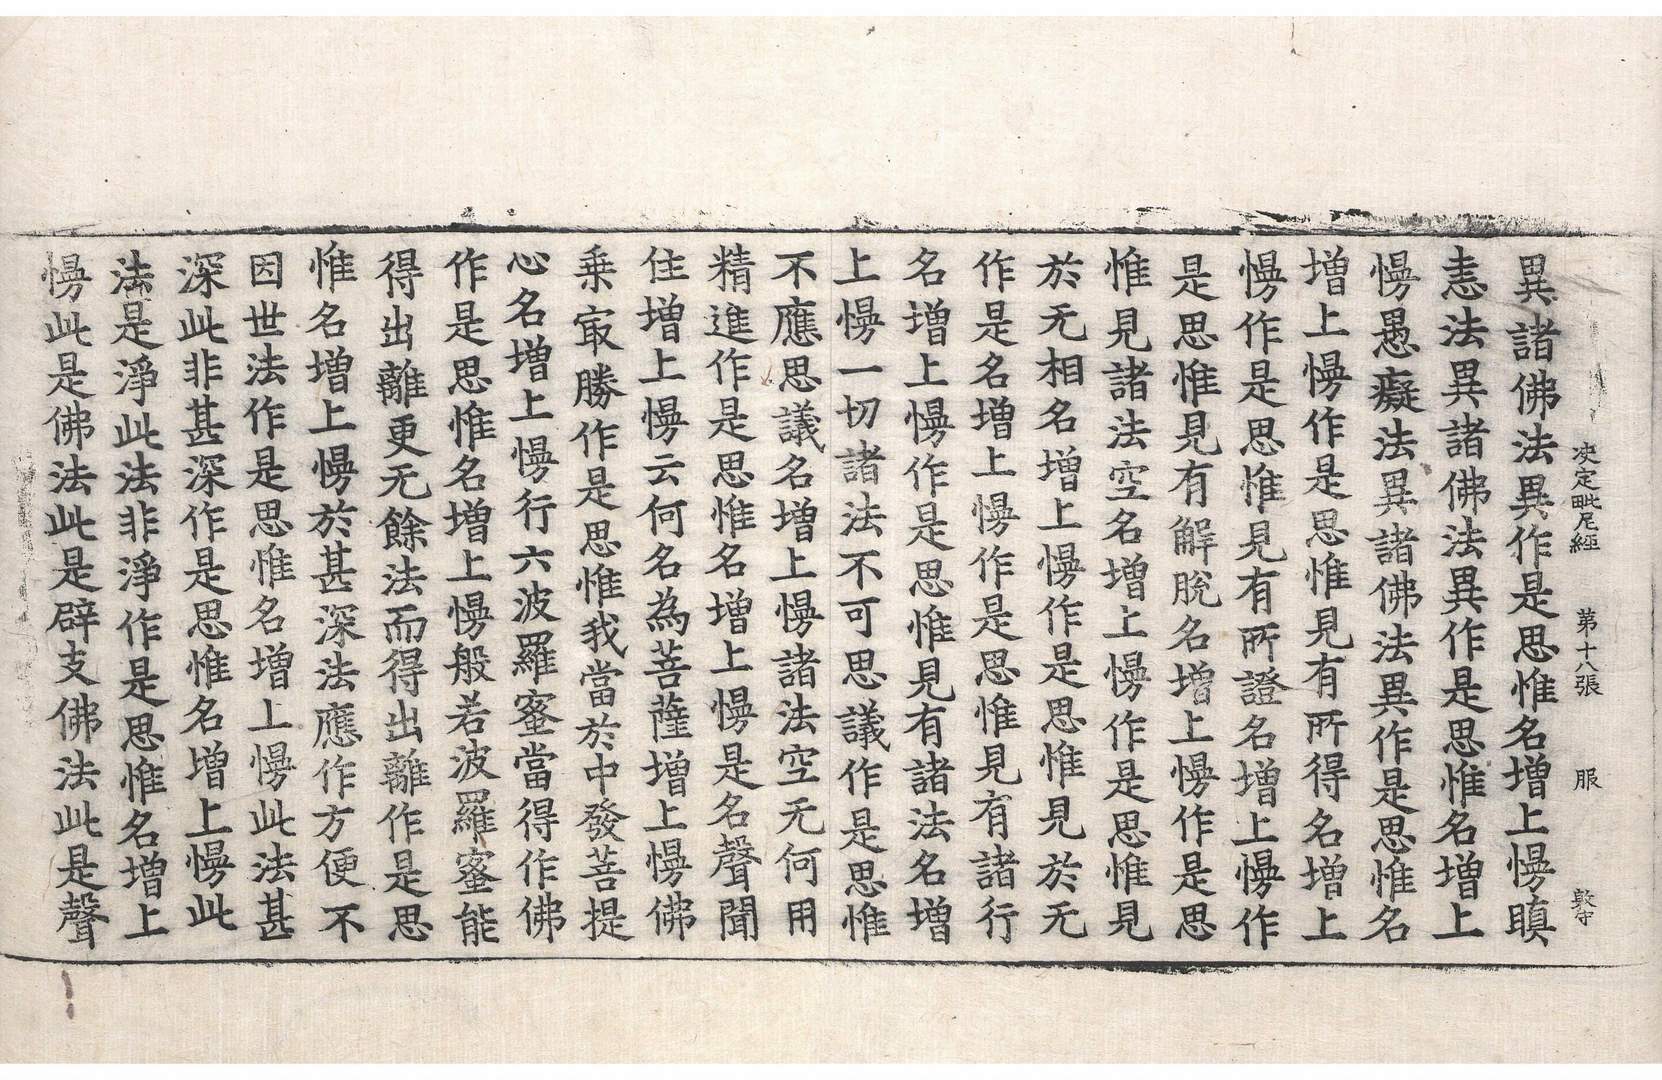 決定毗尼經　第十八張　服　敦守
異諸佛法異作是思惟名增上慢瞋
恚法異諸佛法異作是思惟名增上
慢愚癡法異諸佛法異作是思惟名
增上慢作是思惟見有所得名增上
慢作是思惟見有所證名增上慢作
是思惟見有解脫名增上慢作是思
惟見諸法空名增上慢作是思惟見
於无相名增上慢作是思惟見於无
作是名增上慢作是思惟見有諸行
名增上慢作是思惟見有諸法名增
上慢一切諸法不可思議作是思惟
不應思議名增上慢諸法空无何用
精進作是思惟名增上慢是名聲聞
住增上慢云何名為菩薩增上慢佛
乗㝡勝作是思惟我當於中發菩提
心名增上慢行六波羅蜜當得作佛
作是思惟名增上慢般若波羅蜜能
得出離更无餘法而得出離作是思
惟名增上慢於甚深法應作方便不
因世法作是思惟名增上慢此法甚
深此非甚深作是思惟名增上慢此
法是淨此法非淨作是思惟名增上
慢此是佛法此是辟支佛法此是聲